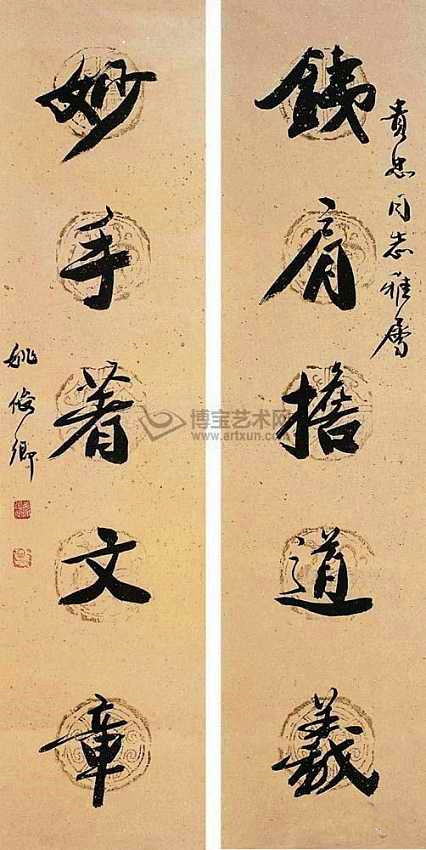 貴忠同志雅屬
鐵肩擔道義
妙手著文章
姚俊卿
博宝艺术网
www.artxun.com